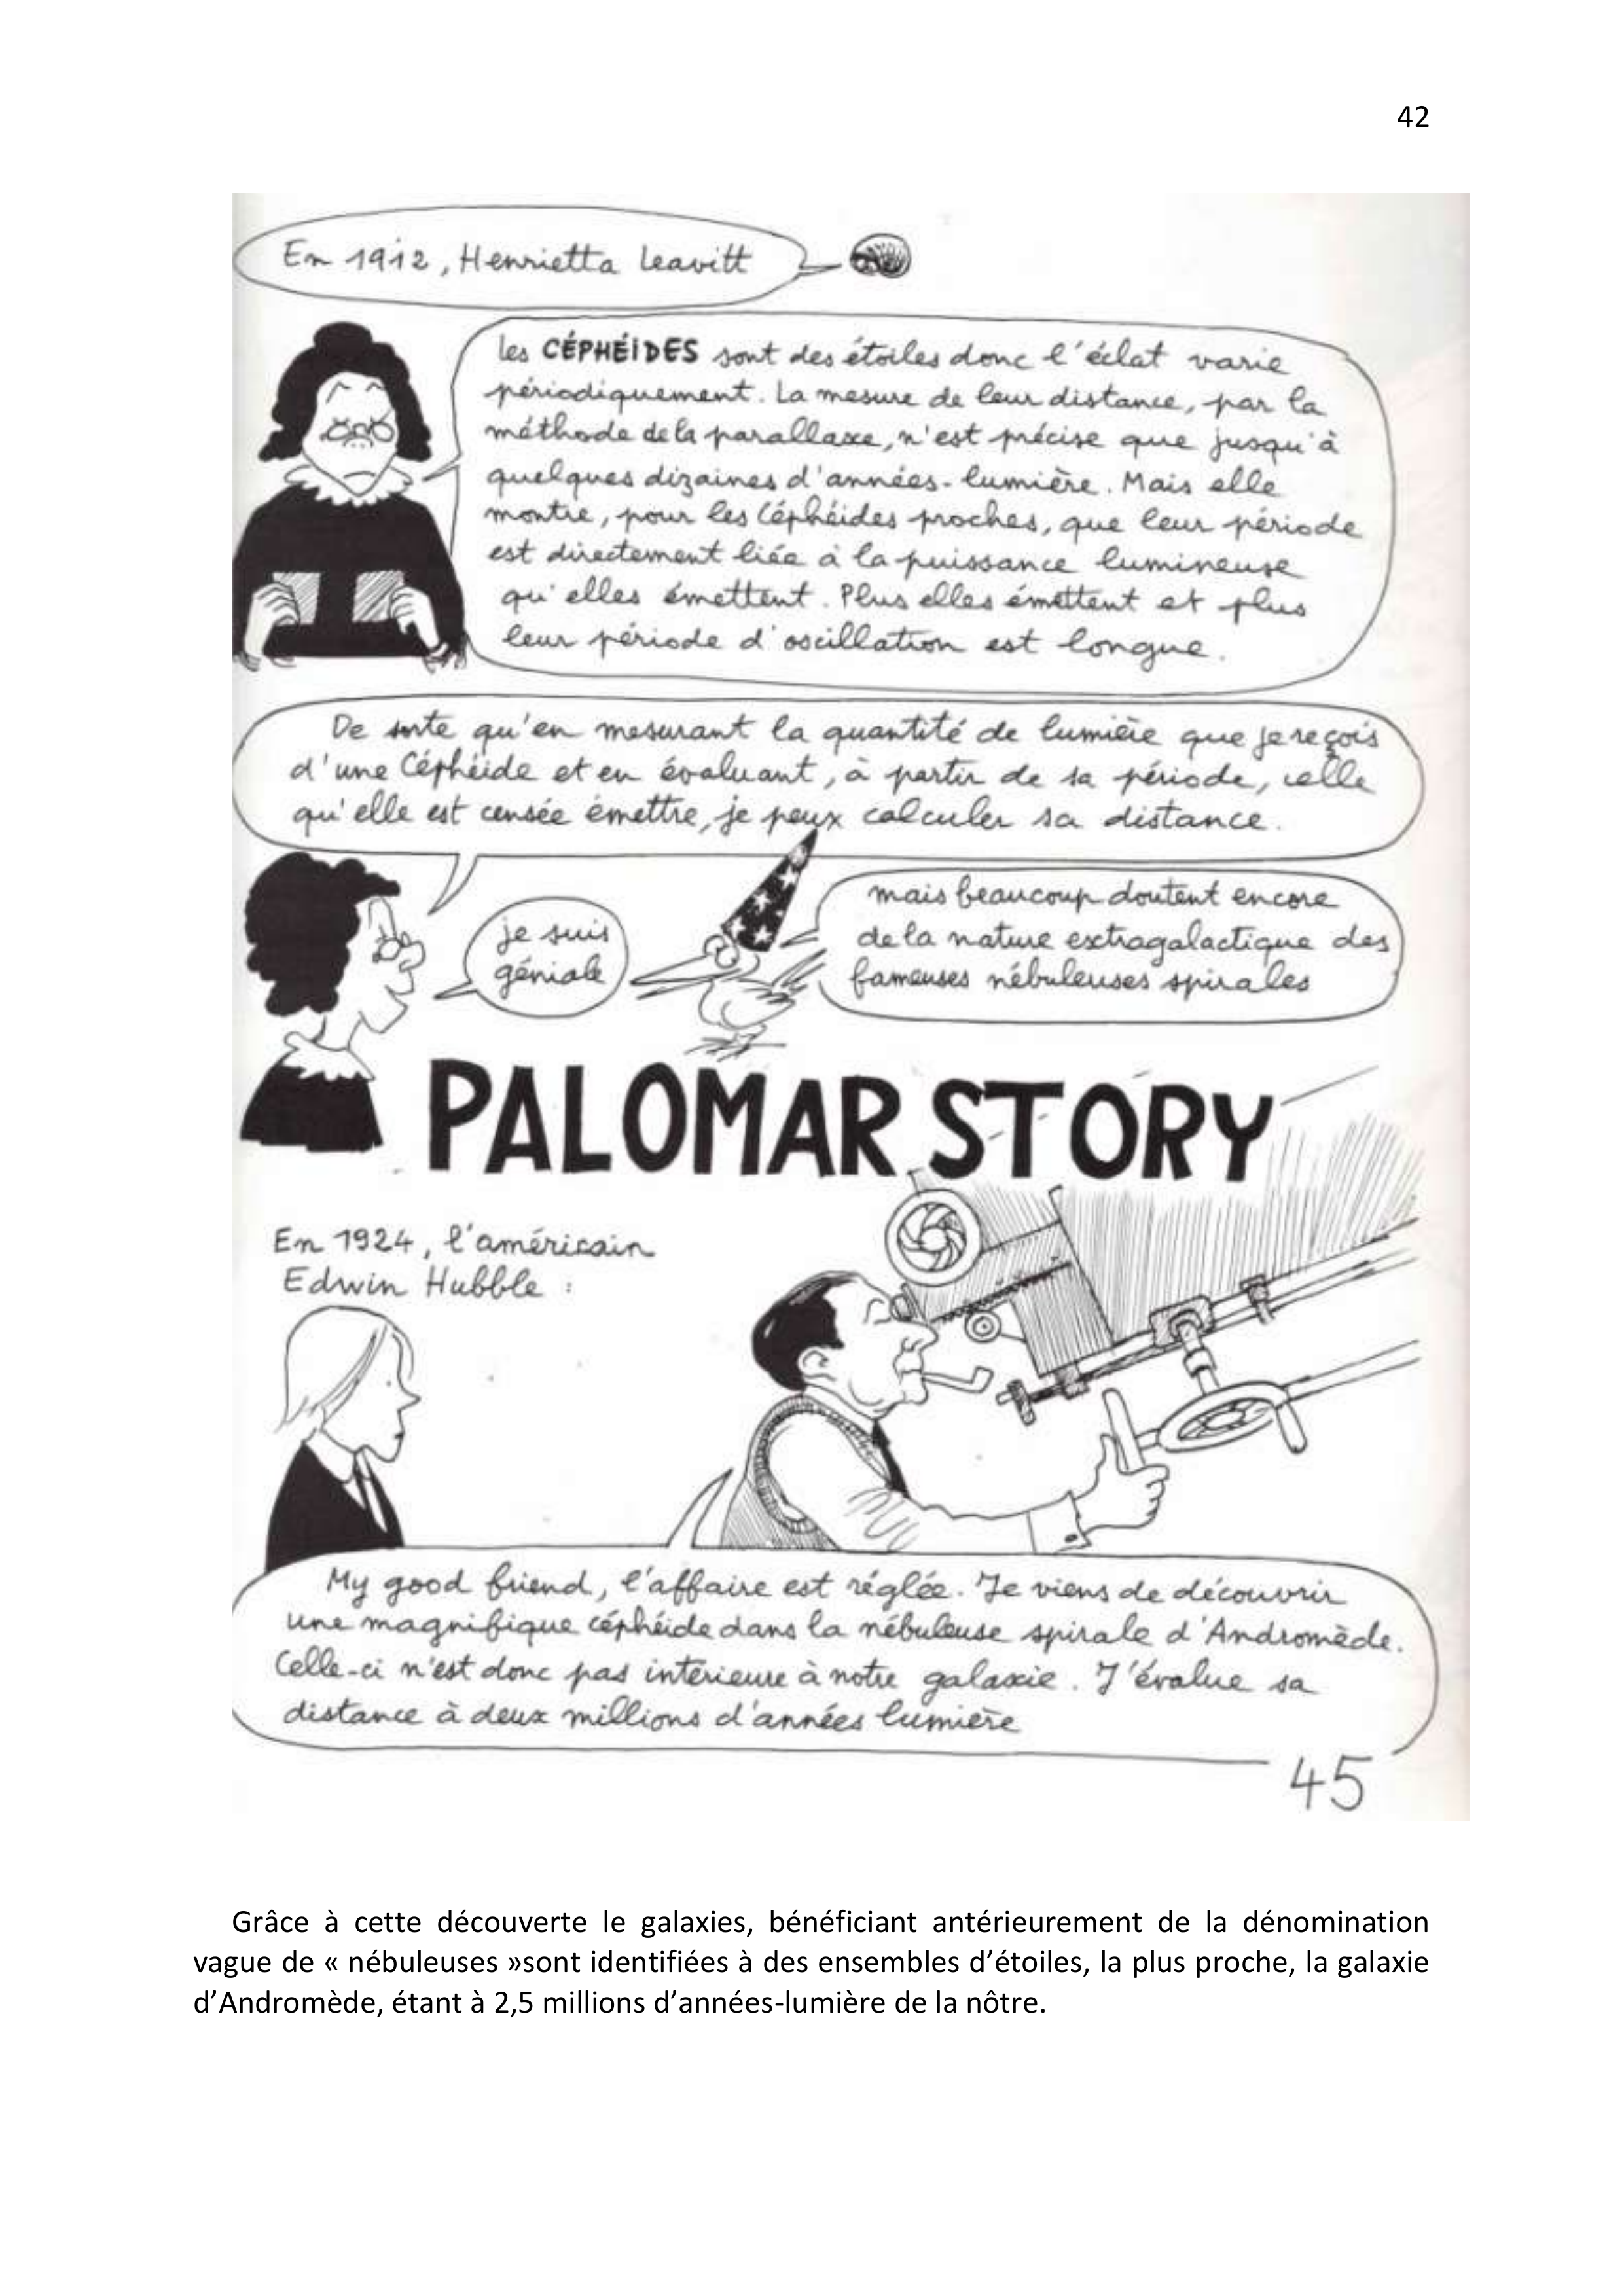 42
En 1912, Henrietta Leavitt
les CÉPHÉIDES sont des étoiles donc l'éclat varie
périodiquement. La mesure de leur distance, par la
méthode de la parallaxe, n'est précise que jusqu'à
quelques dizaines d'années-lumière. Mais elle
montre, pour les Céphéides proches, que leur période
est directement liée à la puissance lumineuse
qu'elles émettent. Plus elles émettent et plus
leur période d'oscillation est longue.
De sorte qu'en mesurant la quantité de lumière que je reçois
d'une Céphéide et en évaluant, à partir de sa période, celle
qu'elle est censée émettre, je peux calculer sa distance.
je suis
géniale
mais beaucoup doutent encore
de la nature extragalactique des
fameuses nébuleuses spirales
PALOMAR STORY
En 1924, l'américain
Edwin Hubble :
My good friend, l'affaire est réglée. Je viens de découvrir
une magnifique céphéide dans la nébuleuse spirale d'Andromède.
Celle-ci n'est donc pas intérieure à notre galaxie. J'évalue sa
distance à deux millions d'années lumière
45
Grâce à cette découverte le galaxies, bénéficiant antérieurement de la dénomination
vague de « nébuleuses »sont identifiées à des ensembles d'étoiles, la plus proche, la galaxie
d'Andromède, étant à 2,5 millions d'années-lumière de la nôtre.